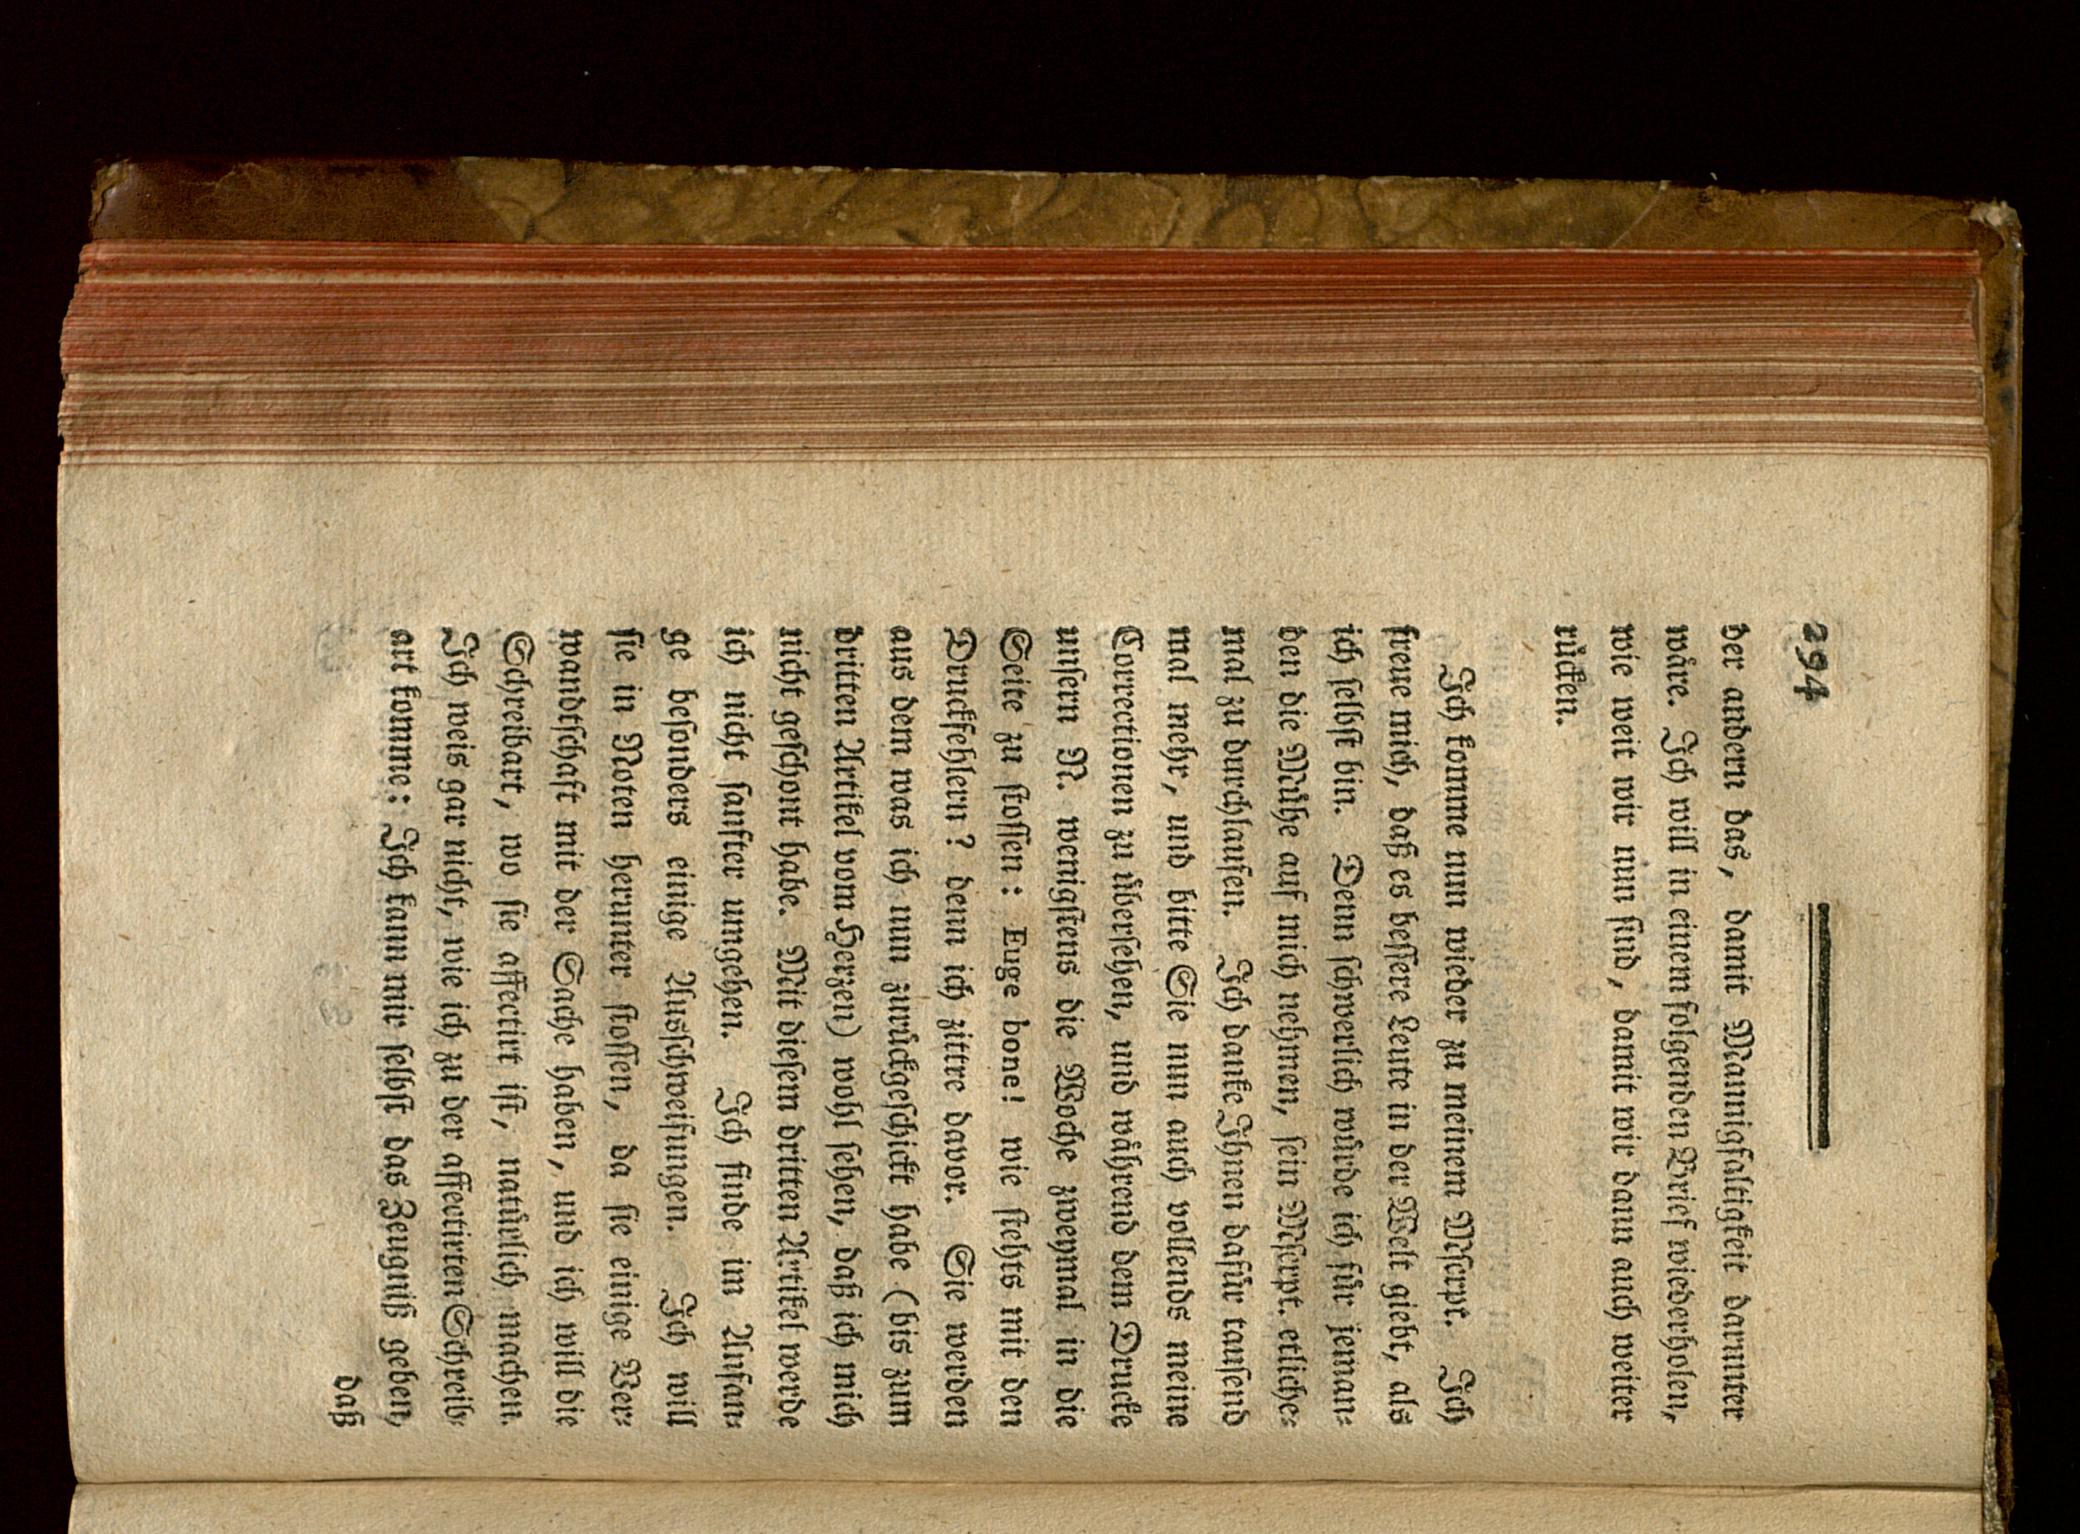 294
der andern das, damit Mannigfaltigkeit darunter
wäre. Ich will in einem folgenden Brief wiederholen,
wie weit wir nun sind, damit wir dann auch weiter
rücken.
Ich komme nun wieder zu meinem Mscrpt. Ich
freue mich, daß es bessere Leute in der Welt giebt, als
ich selbst bin. Denn schwerlich würde ich für jeman-
den die Mühe auf mich nehmen, sein Mscrpt. etliche-
mal zu durchlaufen. Ich danke Ihnen dafür tausend
mal mehr, und bitte Sie nun auch vollends meine
Correctionen zu übersehen, und während dem Drucke
unsern N. wenigstens die Woche zweymal in die
Seite zu stossen: Euge bone! wie stehts mit den
Druckfehlern? denn ich zittre davor. Sie werden
aus dem was ich nun zurückgeschickt habe (bis zum
dritten Artikel vom Herzen) wohl sehen, daß ich mich
nicht geschont habe. Mit diesem dritten Artikel werde
ich nicht sanfter umgehen. Ich finde im Anfan-
ge besonders einige Ausschweifungen. Ich will
sie in Noten herunter stossen, da sie einige Ver-
wandtschaft mit der Sache haben, und ich will die
Schreibart, wo sie affectirt ist, natürlich machen.
Ich weis gar nicht, wie ich zu der affectirten Schreib-
art komme: Ich kann mir selbst das Zeugniß geben,
daß